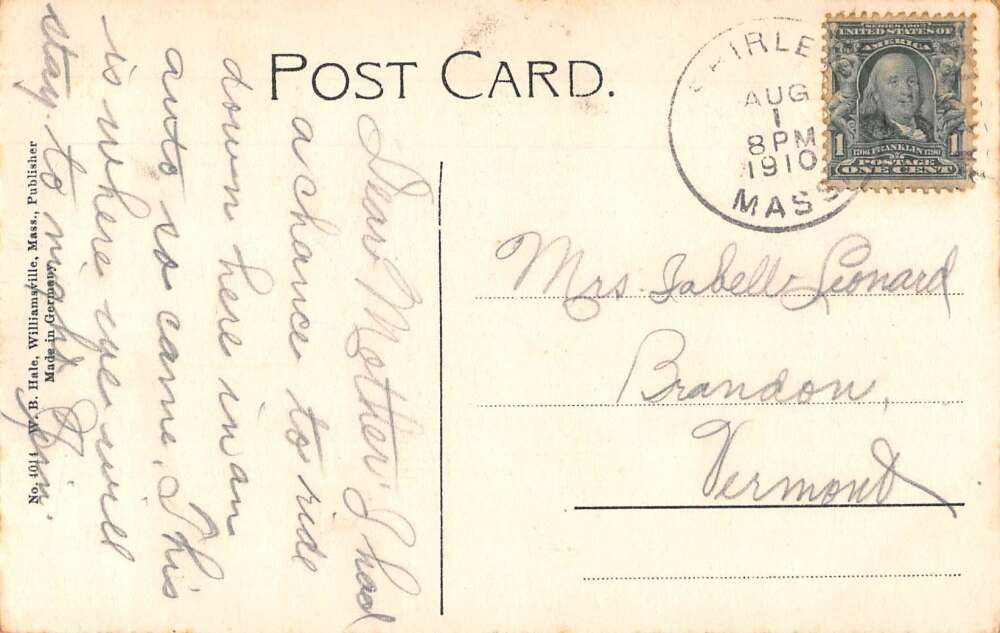 POST CARD.
SHIRLEY
AUG
1
8 PM
1910
MASS
SERIES 1902
UNITED STATES OF
AMERICA
1 1
1706 FRANKLIN 1790
POSTAGE
ONE CENT
Mrs Isabelle Leonard
Brandon,
Vermont
Dear Mother I had
a chance to ride
down here in an
auto so came. This
is where we will
stay to night
No. 4014 W. B. Hale, Williamsville, Mass., Publisher
Made in Germany